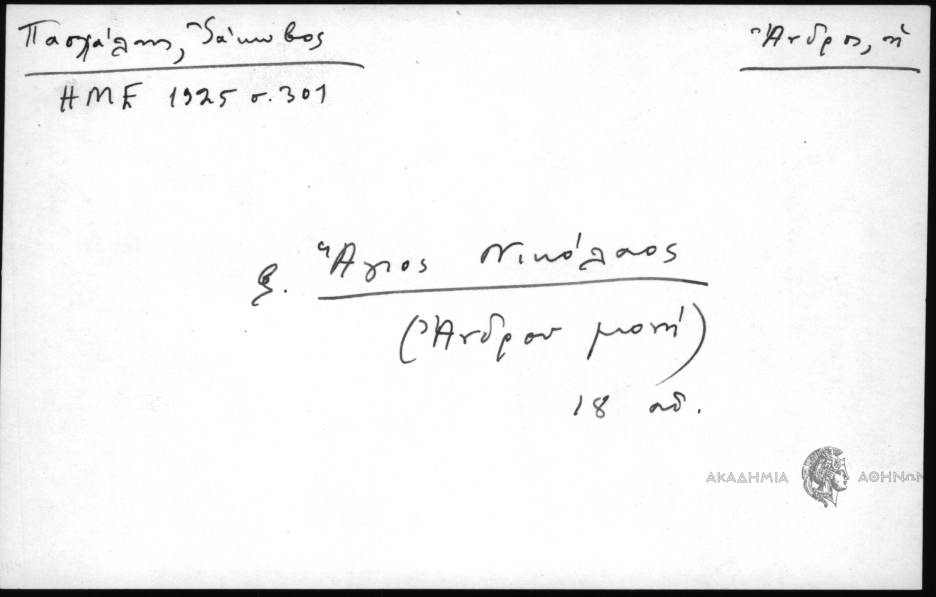 Πασχάλης, Ἰάκωβος
Ἄνδρος, ἡ
ΗΜΕ 1925 σ. 301
ξ. Ἅγιος Νικόλαος
(Ἄνδρου μονή)
18 αἰ.
ΑΚΑΔΗΜΙΑ ΑΘΗΝΩΝ